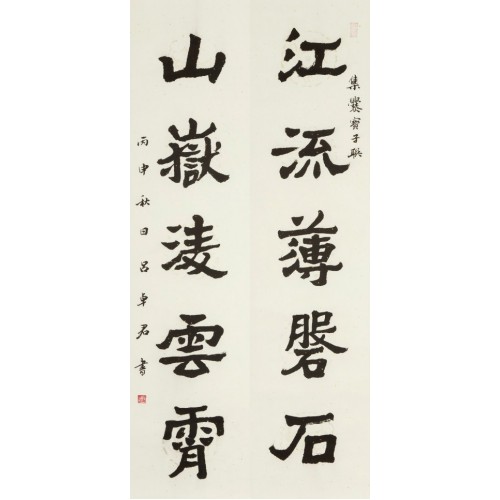 江流薄磐石
集爨寶子聯
山嶽淩雲霄
丙申秋日呂卓君書